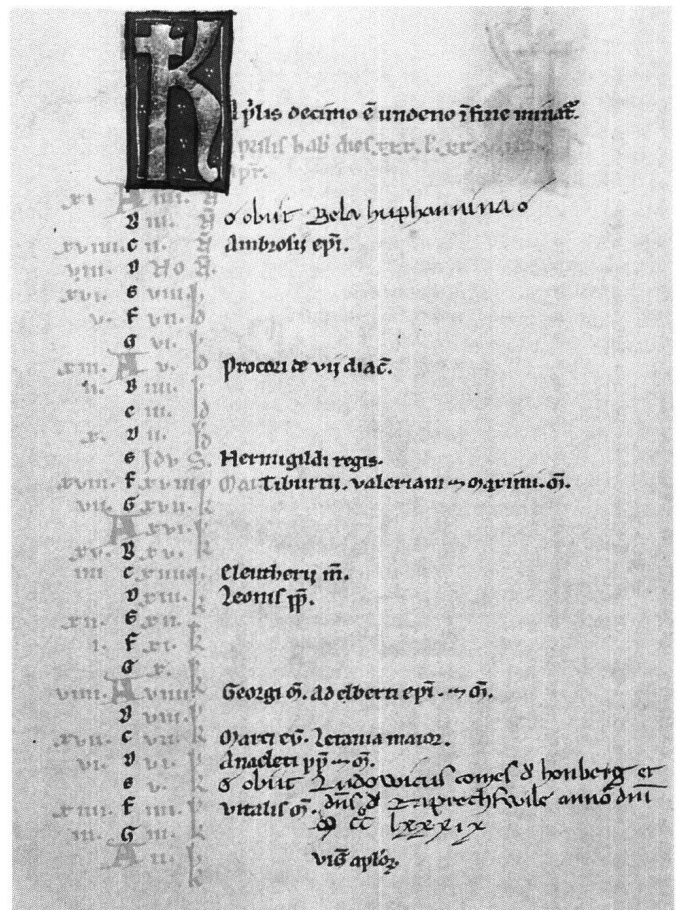 K
Aprilis decimo ē undeno ī fine minat᷑.
Aprilis hab& dies xxx. l. xx
Apr̄.
xi A iiii. N
B iii. N o obiit Bela huphannina o
xviiii. c ii. N Ambrosij ep̄i.
viii. D NO N.
xvi. e viii. id
v. f vii. id
G vi. id
xiii. A v. id Procori de vij diac̄.
ii. B iiii. id
c iii. id
x. D ii. id
e Idus. Hermigildi regis.
xviii. f xviii Mai Tiburtii. valeriani ⁊ maximi. m̄.
vii. G xvii. k
A xvi. k
xv. B xv. k
iiii c xiiii. k Eleutherij m̄.
D xiii. k Leonis pp̄.
xii. e xii. k
i. f xi. k
G x. k
viiii. A viiii. k Georgi m̄. Adelberti ep̄i. ⁊ m̄.
B viii. k
xvii. c vii. k Marci ev̄. Letania maior.
vi. D vi. k Anacleti pp̄ ⁊ m̄.
e v. k o obiit Ludowicus comes d̄ honberg et
xiiii. f iiii. k vitalis m̄. dn̄s d̄ Ruprechswile anno dn̄i
iii. G iii. k M CC lxxxix
A ii. k viḡ apl̄oꝝ